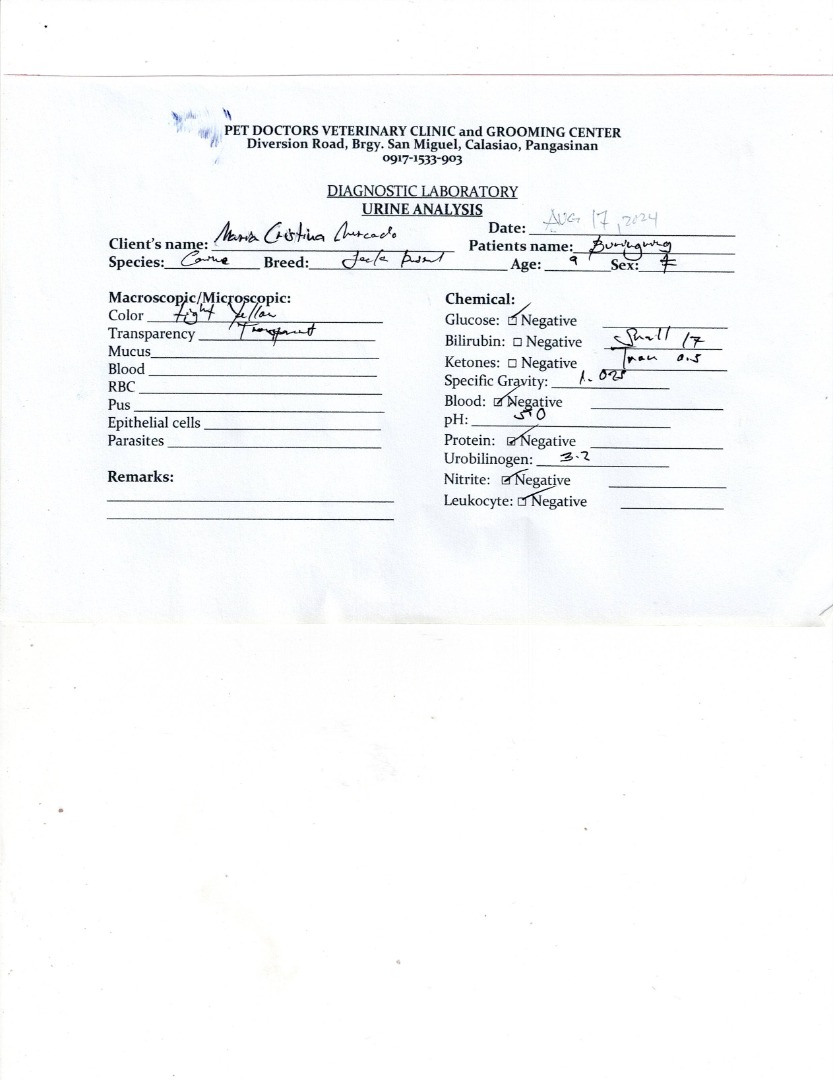 PET DOCTORS VETERINARY CLINIC and GROOMING CENTER
Diversion Road, Brgy. San Miguel, Calasiao, Pangasinan
0917-1533-903
DIAGNOSTIC LABORATORY
URINE ANALYSIS
Date: AUG 17, 2024
Client's name: Maria Cristina Mercado
Patients name:
Species: Canine Breed: Jack
Age: 9 Sex: F
Macroscopic/Microscopic:
Color Light Yellow
Transparency Transparent
Mucus
Blood
RBC
Pus
Epithelial cells
Parasites
Remarks:
Chemical:
Glucose: ☑ Negative
Bilirubin: ☐ Negative Small 17
Ketones: ☐ Negative Trace 0.5
Specific Gravity: 1.025
Blood: ☑ Negative
pH: 5.0
Protein: ☑ Negative
Urobilinogen: 3.2
Nitrite: ☑ Negative
Leukocyte: ☑ Negative